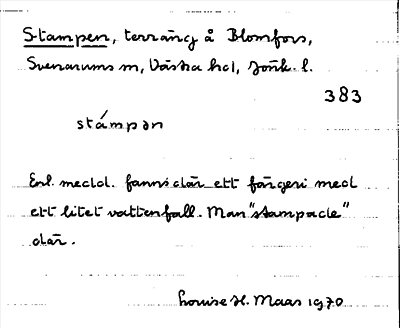 Stampen, terräng å Blomfors,
Svenarums sn, Västra hd, Jönk. l.
383
stámpən
Enl. meddl. fanns där ett färgeri med
ett litet vattenfall. Man "stampade"
där.
Louise H. Maas 1970